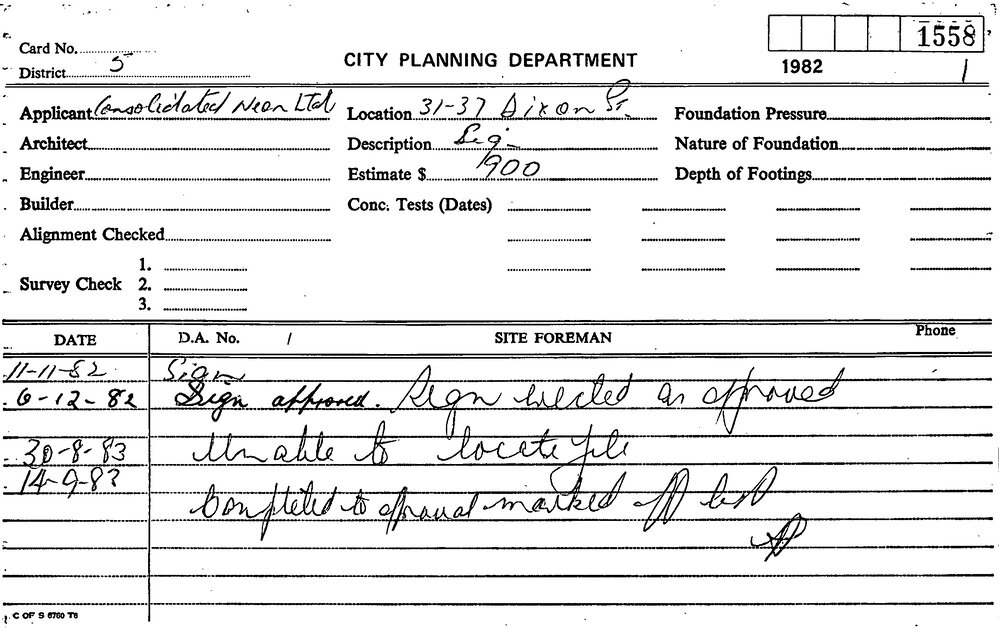 1558
Card No.
CITY PLANNING DEPARTMENT
District 5
1982 1
Applicant Consolidated Neon Ltd Location 31-37 Dixon St. Foundation Pressure
Architect Description Sign Nature of Foundation
Engineer Estimate $ 900 Depth of Footings
Builder Conc. Tests (Dates)
Alignment Checked
1.
Survey Check 2.
3.
DATE D.A. No. / SITE FOREMAN Phone
11-11-82 Sign
6-12-82 Sign approved. Sign erected as approved
30-8-83 Unable to locate file
14-9-83
Completed to approval marked off list
C OF S 6760 T6